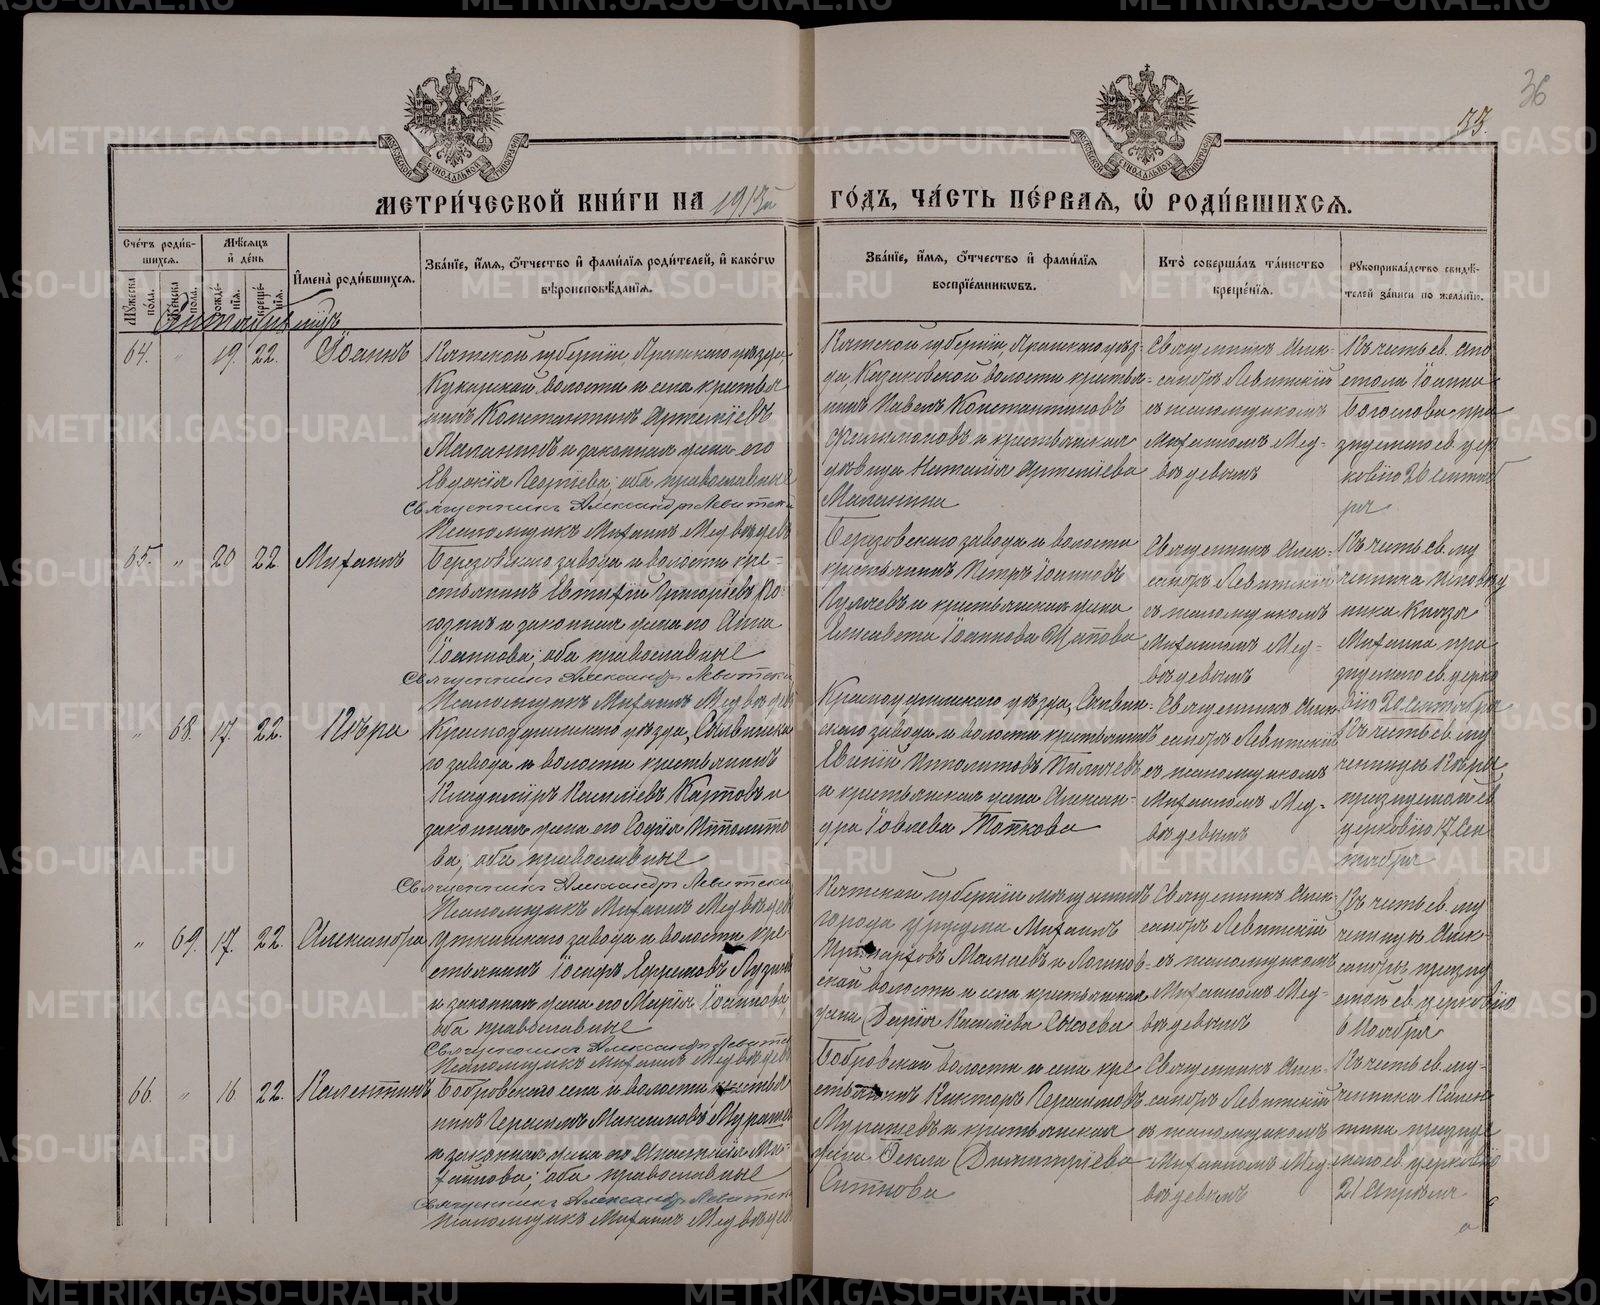 36
33.
МЕТРИ́ЧЕСКОЙ КНИ́ГИ НА 1913й ГО́ДЪ, ЧА́СТЬ ПЕ́РВАЯ, Ѡ РОДИ́ВШИХСЯ.
Сче́тъ роди́в-
шихся.
Мѣ́сяцъ
и҆ де́нь
Му́жеска по́ла.
Же́нска по́ла.
рожде́нїя.
креще́нїя.
И҆мена̀ роди́вшихся.
Зва́нїе, и҆́мя, ѻ҆́тчество и҆ фами́лїя роди́телей, и҆ како́гѡ
вѣроисповѣ́данїя.
Зва́нїе, и҆́мя, ѻ҆́тчество и҆ фами́лїя
воспрїе́мниковъ.
Кто̀ соверша́лъ та́инство
креще́нїя.
Рꙋкоприкла́дство свидѣ́-
телей за́писи по жела́нїю.
Сентябрь
64. " 19. 22. Іоаннъ
Вятской губерніи, Яранскаго уѣзда,
Кукарской волости и села кресть-
янинъ Константинъ Артеміевъ
Маланинъ и законная жена его
Евдокія Георгіева; оба православные
Священникъ Александръ Левитскій
Псаломщикъ Михаилъ Медвѣдевъ
Вятской губерніи, Яранскаго уѣз-
да, Казаковской волости кресть-
янинъ Павелъ Константиновъ
Филимоновъ и крестьянская
дѣвица Наталія Артеміева
Маланина
Священникъ Алек-
сандръ Левитскій
съ псаломщикомъ
Михаиломъ Мед-
вѣдевымъ
Въ честь св. апо
стола Іоанна
Богослова, пра
зднуемаго св. цер
ковію 26 сентяб
ря
65. " 20 22. Михаилъ
Березовскаго завода и волости кре-
стьянинъ Евтихій Григоріевъ
и законная жена его Анна
Іоаннова; оба православные
Священникъ Александръ Левитскій
Псаломщикъ Михаилъ Медвѣдевъ
Березовскаго завода и волости
крестьянинъ Петръ Іоанновъ
и крестьянская жена
Елисавета Іоаннова
Священникъ Алек-
сандръ Левитскій
съ псаломщикомъ
Михаиломъ Мед-
вѣдевымъ
Въ честь св. му
ченика
князя
Михаила пра
зднуемаго св. церко
вію 20 сентября
" 68. 17. 22. Вѣра
Красноуфимскаго уѣзда, Сылвинска
го завода и волости крестьянинъ
Владиміръ Василіевъ Картовъ и
законная жена его Софія Ипполито
ва; оба православные
Священникъ Александръ Левитскій
Псаломщикъ Михаилъ Медвѣдевъ
Красноуфимскаго уѣзда, Сылвин-
скаго завода и волости крестьянинъ
Евгеній Ипполитовъ
и крестьянская жена Алексан-
дра Іовлева
Священникъ Алек
сандръ Левитскій
съ псаломщикомъ
Михаиломъ Мед-
вѣдевымъ
Въ честь св. му
ченицы Вѣры
празднуемой св.
церковію 17 Сен
тября
" 69. 17. 22. Александра
Уткинскаго завода и волости кре
стьянинъ Іосифъ Ефремовъ Лузинъ
и законная жена его Марія Іоаннова
оба православные
Священникъ Александръ Левитскій
Псаломщикъ Михаилъ Медвѣдевъ
Вятской губерніи мѣщанинъ
города Уржума Михаилъ
Мамаевъ и
ской волости и села крестьянская
жена Дарія Василіева Сысоева
Священникъ Алек
сандръ Левитскій
съ псаломщикомъ
Михаиломъ Мед-
вѣдевымъ
Въ честь св. му
ченицы Алек-
сандры празд
емой св. церковію
6 Ноября
66. " 16 22. Валентинъ
Бобровскаго села и волости кресть
нинъ Герасимъ Максимовъ
и законная жена его Анастасія Ми-
хаилова; оба православные
Священникъ Александръ Левитскій
Псаломщикъ Михаилъ Медвѣдевъ
Бобровской волости и села кре
стьянинъ Викторъ Герасимовъ
и крестьянская
жена Ѳекла Димитріева
Ситнова
Священникъ Алек
сандръ Левитскій
съ псаломщикомъ
Михаиломъ Мед
вѣдевымъ
Въ честь св. му-
ченика Вален
тина праздну
емаго св. церковію
21 Апрѣля